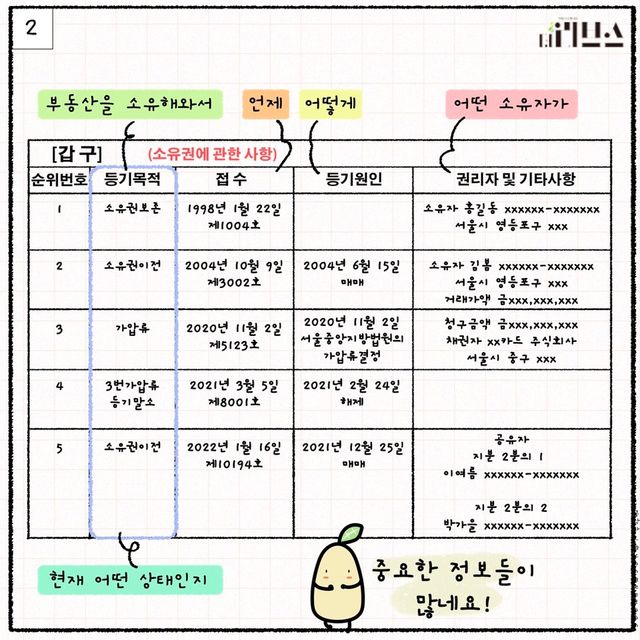 2
더리브스
부동산을 소유해와서
언제
어떻게
어떤 소유자가
[갑 구] (소유권에 관한 사항)
순위번호 등기목적 접 수 등기원인 권리자 및 기타사항
1 소유권보존 1998년 1월 22일 소유자 홍길동 xxxxxx-xxxxxxx
제1004호 서울시 영등포구 xxx
2 소유권이전 2004년 10월 9일 2004년 6월 15일 소유자 김봄 xxxxxx-xxxxxxx
제3002호 매매 서울시 영등포구 xxx
거래가액 금xxx,xxx,xxx
3 가압류 2020년 11월 2일 2020년 11월 2일 청구금액 금xxx,xxx,xxx
제5123호 서울중앙지방법원의 채권자 xx카드 주식회사
가압류결정 서울시 중구 xxx
4 3번가압류 2021년 3월 5일 2021년 2월 24일
등기말소 제8001호 해제
5 소유권이전 2022년 1월 16일 2021년 12월 25일 공유자
제10194호 매매 지분 2분의 1
이여름 xxxxxx-xxxxxxx
지분 2분의 2
박가을 xxxxxx-xxxxxxx
현재 어떤 상태인지
중요한 정보들이
많네요!